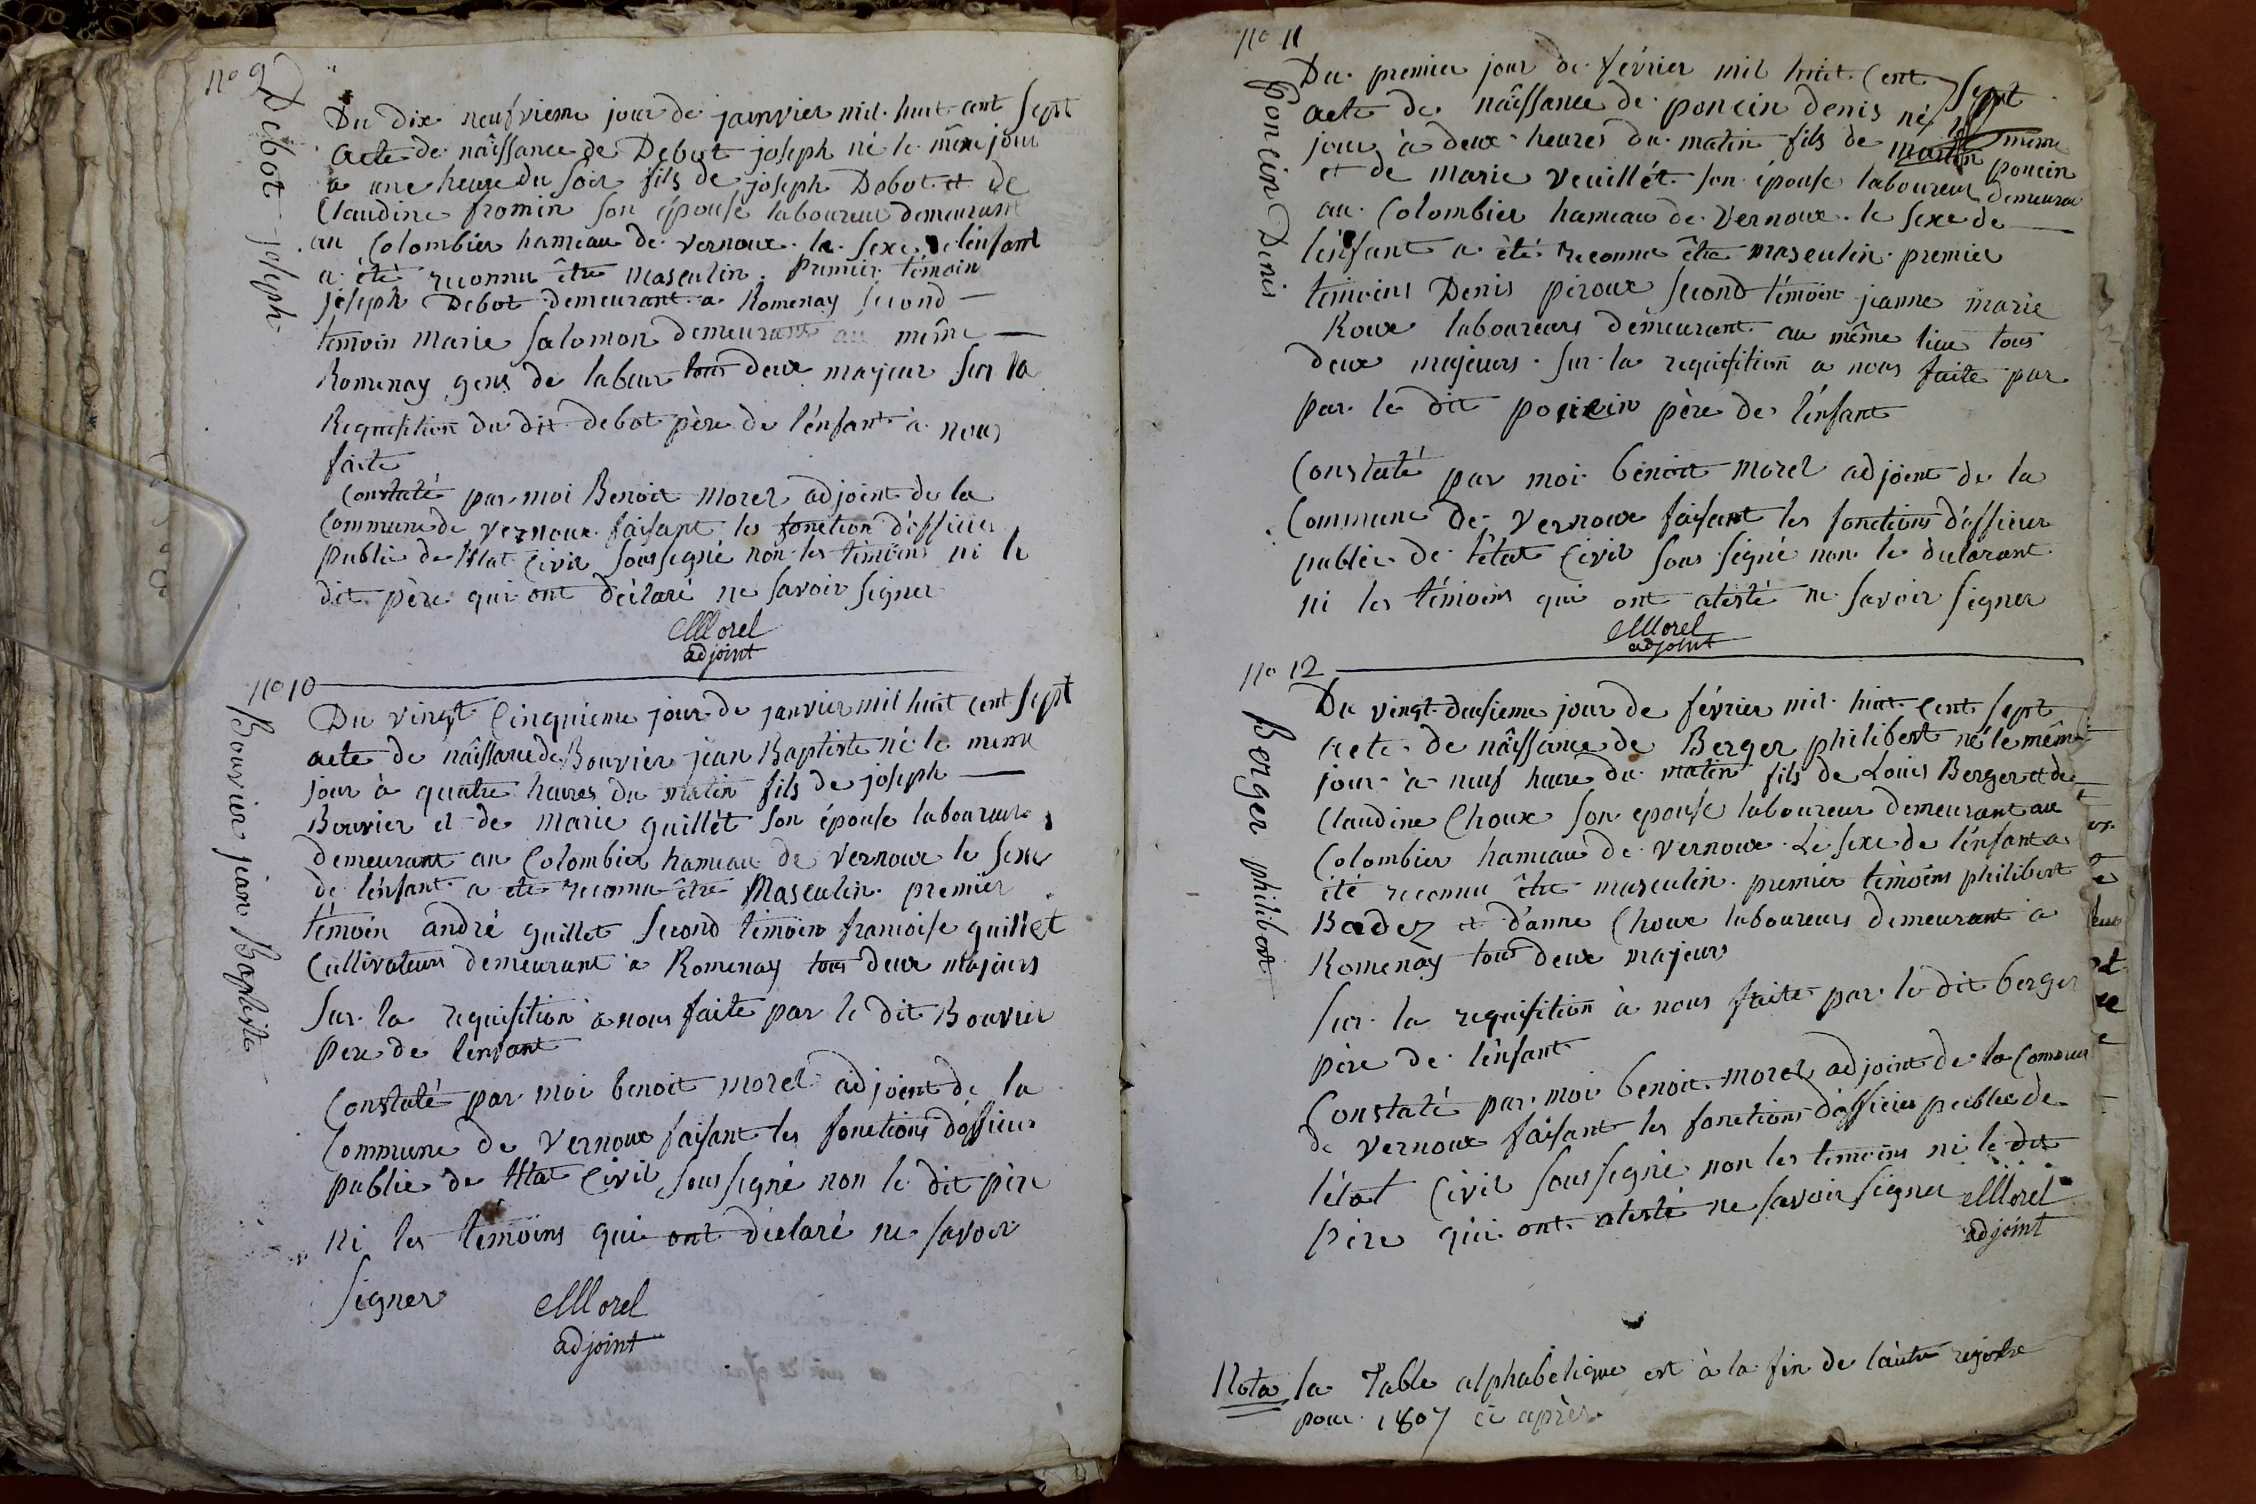 no 9
Debot joseph
Du dix neufvieme jour de janvier mil huit cent sept
acte de nâissance de Debot joseph né le même jour
a une heure du soir fils de joseph Debot et de
Claudine fromin son épouse laboureur demeurant
au Colombier hameau de vernoux le sexe de lénfant
a été reconnu être masculin. premier témoin
joseph Debot demeurant a Romenay second
témoin marie salomon demeurant au même
Romenay gens de labeur tous deux majeur sur la
Requisition du dit debot père de lénfant à nous
faite
Constaté par moi Benoit morel adjoint de la
Commune de vernoux faisant les fonction dófficier
public de létat Civil soussigné non les témoins ni le
dit père qui ont déclaré ne savoir signer
Morel
adjoint
no 10
Bouvier jean Baptiste
Du vingt Cinquieme jour de janvier mil huit cent sept
acte de nâissance de Bouvier jean Baptiste né le meme
jour à quatre heures du matin fils de joseph
Bouvier et de marie guillét son épouse laboureur
demeurant au Colombier hameau de vernoux le sexe
de lénfant a eté reconnu être Masculin. premier
témoin andré guillet second témoin francoise guillet
Cultivateurs demeurant a Romenay tous deux majeurs
sur la requisition a nous faite par le dit Bouvier
pere de lenfant
Constaté par moi benoit morel adjoint de la
Commune de vernoux faisant les fonctions dófficier
public de létat Civil soussigné non le dit père
ni les témoins qui ont déclaré ne savoir
signer
Morel
adjoint
no 11
Poncin Denis
Du premier jour de février mil huit Cent sept
acte de nâissance de poncin denis né le même
jour à deux heures du matin fils de martin poncin
et de marie veuillét son épouse laboureur demeurant
au Colombier hameau de vernoux. le sexe de
lénfant a été reconnu être masculin. premier
témoins Denis péroux second témoin jeanne marie
Roux laboureurs demeurant au même lieu tous
deux majeurs. sur la requisition a nous faite par
par le dit poncin père de lénfant
Constaté par moi benoit morel adjoint de la
Commune de vernoux faisant les fonctions dófficier
public de létat Civil sous signé non le déclarant
ni les témoins qui ont atesté ne savoir signer
Morel
adjoint
no 12
Berger philibert
Du vingt deusieme jour de février mil huit Cent sept
acte de nâissance de Berger philibert né le même
jour à neuf heure du matin fils de Louis Berger et de
Claudine Choux son épouse laboureur demeurant au
Colombier hameau de vernoux. Le sexe de lénfant a
été reconnu être masculin. premier témoins philibert
Badez et d'anne Choux laboureurs demeurant a
Romenay tous deux majeurs
sur la requisition à nous faite par le dit berger
père de lénfant
Constaté par moi benoit morel adjoint de la Commune
de vernoux faisant les fonctions dófficier public de
létat Civil soussigné non les temoins ni le dit
père qui ont atesté ne savoir signer
Morel
adjoint
Nota la Table alphabétique est à la fin de láutre registre
pour 1807 ci après